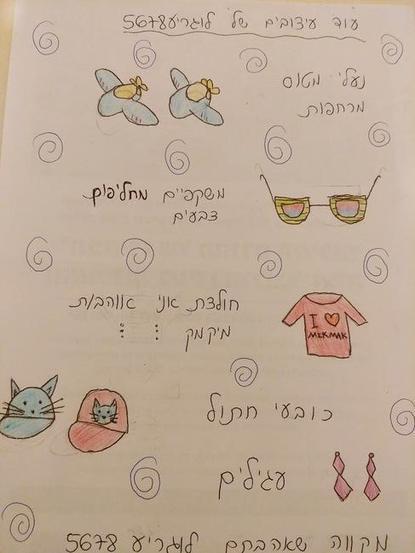 עוד עיצובים של לוגריע5678
נעלי מטוס
מרחפות
משקפיים מחליפים
צבעים
חולצת אני אוהב/ת
מיקמק
I ❤ MEKMAK
כובעי חתול
עגילים
מקווה שאהבתם לוגריע 5678